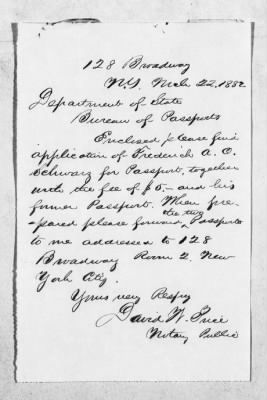 128 Broadway
N.Y. Mch 22. 1882
Department of State
Bureau of Passports
Enclosed please find
application of Frederick A. O.
Schwarz for Passport, together
with the fee of $5.- and his
former Passport. When pre-
pared please forward the two Passports
to me addressed to 128
Broadway Room 2. New
York City.
Yours very Respy
David W. Price
Notary Public